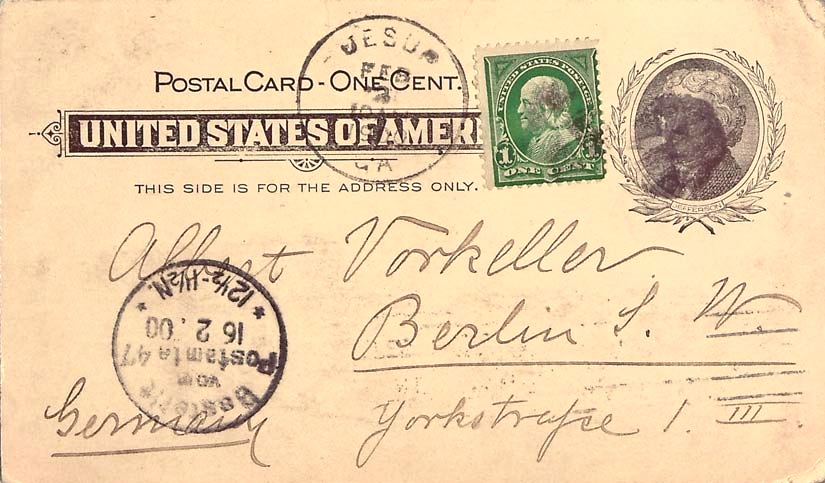 POSTAL CARD - ONE CENT.
UNITED STATES OF AMER
THIS SIDE IS FOR THE ADDRESS ONLY.
JESUP
FEB
GA
UNITED STATES POSTAGE
1 1
ONE CENT
JEFFERSON
Albert Vorkeller
Berlin S. W.
Yorkstraße 1. III
Germany
Bestellt
vom
Postamte 47
16 2. 00
* 12½-1½N. *